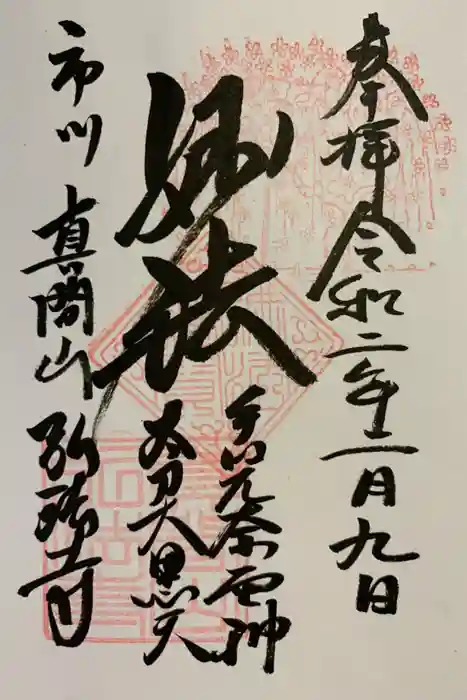 奉拝 令和二年二月九日
妙法
手児奈霊神
太刀大黒天
市川 真間山 弘法寺